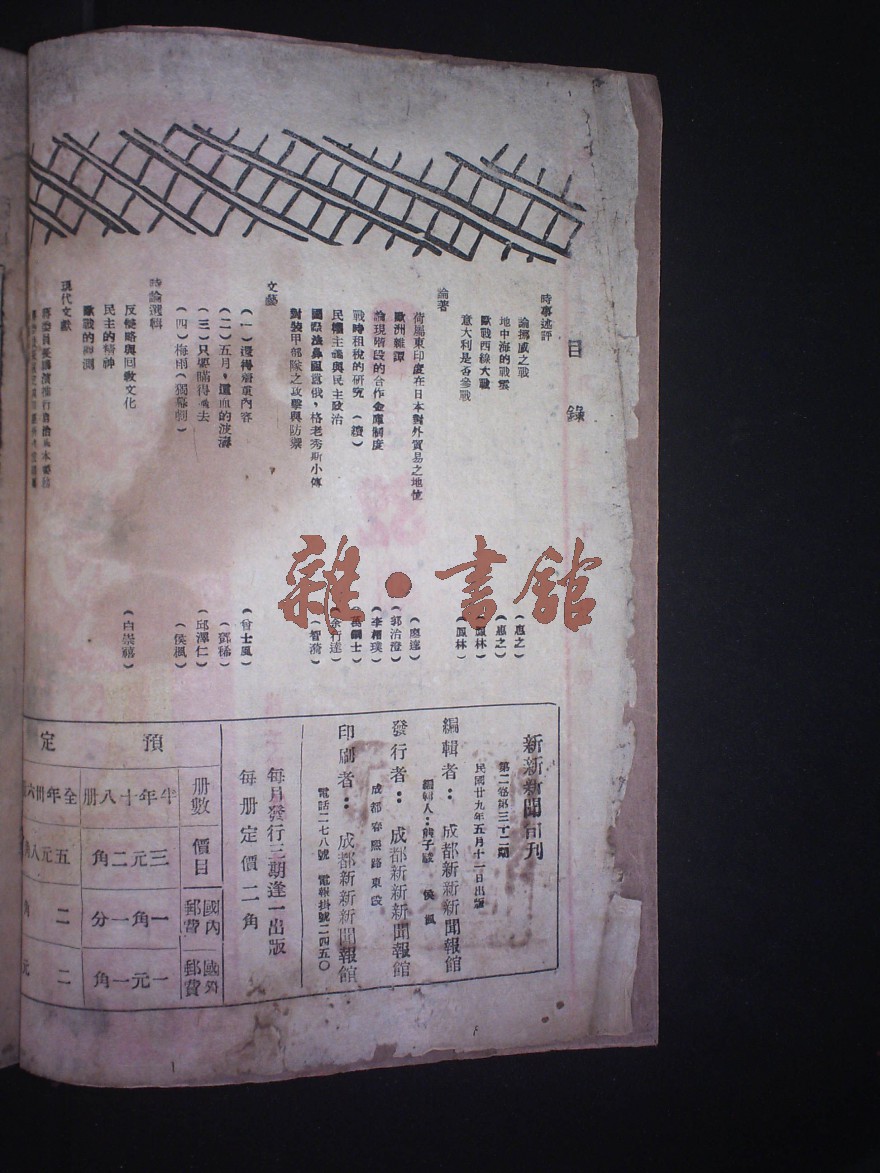 目錄
時事述評
論挪威之戰 (惠之)
地中海的戰雲 (惠之)
歐戰西線大戰 (鳳林)
意大利是否參戰 (鳳林)
論著
荷屬東印度在日本對外貿易之地位 (廖遠)
歐洲雜譚 (郭治澄)
論現階段的合作金庫制度 (李相璞)
戰時租稅的研究(續)
民權主義與民主政治 (余行達)
國際法鼻祖虞俄,格老秀斯小傳 (智漪)
對裝甲部隊之攻擊與防禦
文藝
(一)還得着重內容 (曾士風)
(二)五月,遺血的波濤 (鄧稀)
(三)只要瞞得過去 (邱澤仁)
(四)梅雨(獨幕劇) (侯楓)
時論選輯
反侵略與回教文化 (白崇禧)
民主的精神
歐戰的預測
現代文獻
新新新聞旬刊
第二卷第三十二期
民國廿九年五月十一日出版
編輯者:成都新新新聞報館
編輯人:熊子駿 侯楓
發行者:成都新新新聞報館
成都春熙路東段
印刷者:成都新新新聞報館
電話二七八號 電報掛號二四五〇
每月發行三期逢一出版
每册定價二角
預定
册數 半年十八册 全年卅六
價目 三元二角 五元八角
國內郵費 一角一分 二角
國外郵費 一元一角 二元
雜·書館